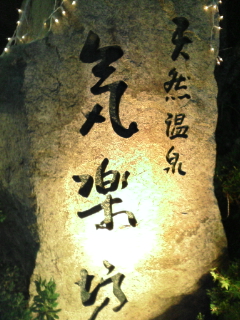 天然温泉
気楽坊